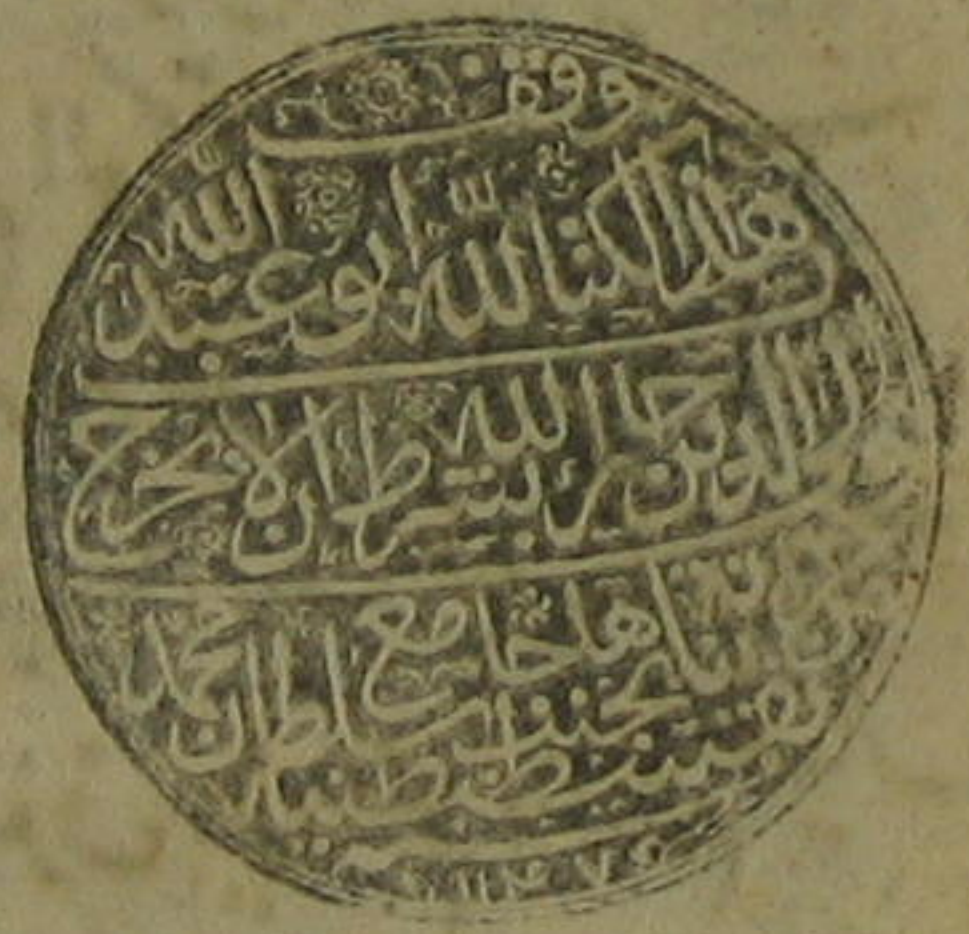 وقف
هذا الكتاب لله ابو عبد الله
ولي الدين جار الله بشرط ان لا يخرج
بناها بجنب جامع سلطان محمد
بقسطنطنيه